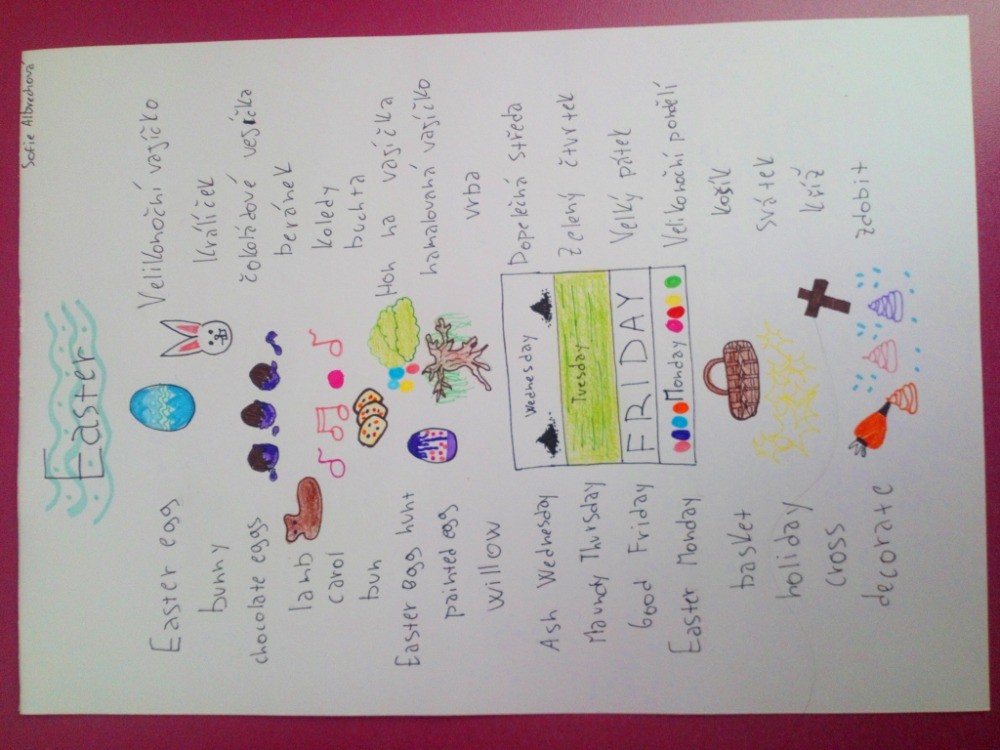 Sofie Albrechová
Easter
Easter egg Velikonoční vajíčko
bunny králíček
chocolate eggs čokoládové vejíčka
lamb beránek
carol koledy
bun buchta
Easter egg hunt Hon na vajíčka
painted egg namalovaná vajíčko
willow vrba
Ash Wednesday Wednesday Popelečná středa
Maundy Thursday Tuesday Zelený čtvrtek
Good Friday FRIDAY Velký pátek
Easter Monday Monday Velikonoční pondělí
basket košík
holiday svátek
cross kříž
decorate zdobit